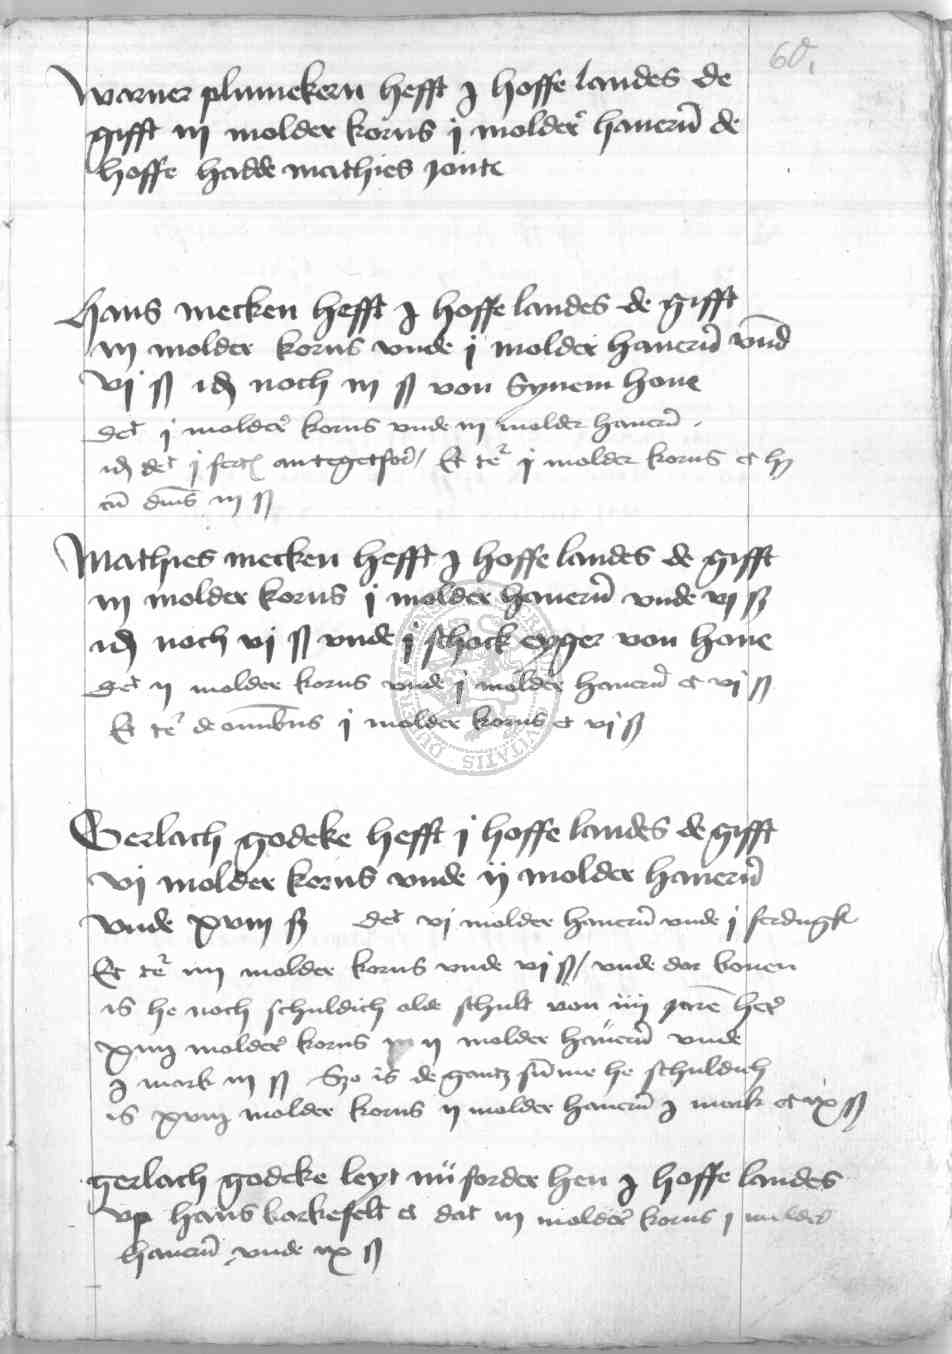 60.
Warner plumekern hefft j hoffe landes de
gifft iij molder korns j molder haueren̄ de
hoffe hadde mathies jonte
Hans mecken hefft j hoffe landes de gifft
iij molder korns vnde j molder haueren̄ vnd̄
vj ß noch iij ß von synem houe
det j molder korns vnde iij molder haueren̄
det j j molder korns et
cū iij ß
Mathies mecken hefft j hoffe landes de gifft
iij molder korns j molder haueren̄ vnde vj ß
noch vj ß vnde j schock eyger von houe
det ij molder korns vnde j molder haueren̄ et vj ß
Et de omībus j molder korns et vj ß
Gerlach godeke hefft j hoffe landes de gifft
vj molder korns vnde ij molder haueren̄
vnde xviij ß det vj molder haueren̄ vnde j ferdingk
Et iiij molder korns vnde vj ß / vnde dar bouen
is he noch schuldich olde schult von iiij jarē her
xiiij molder korns ij molder haueren̄ vnde
j mark iij ß Szo is de gantz sūme he schuldich
is xviij molder korns ij molder haueren̄ j mark et ix ß
gerlach godeke leyt nu forder hen j hoffe landes
vp hans barkefelt et dat iij molder korns j molder
haueren̄ vnde ix ß